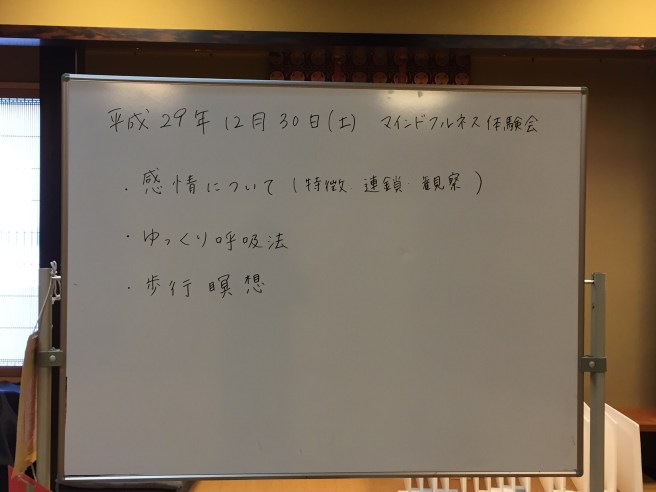 平成29年12月30日(土) マインドフルネス体験会
・感情について(特徴・連鎖・観察)
・ゆっくり呼吸法
・歩行瞑想